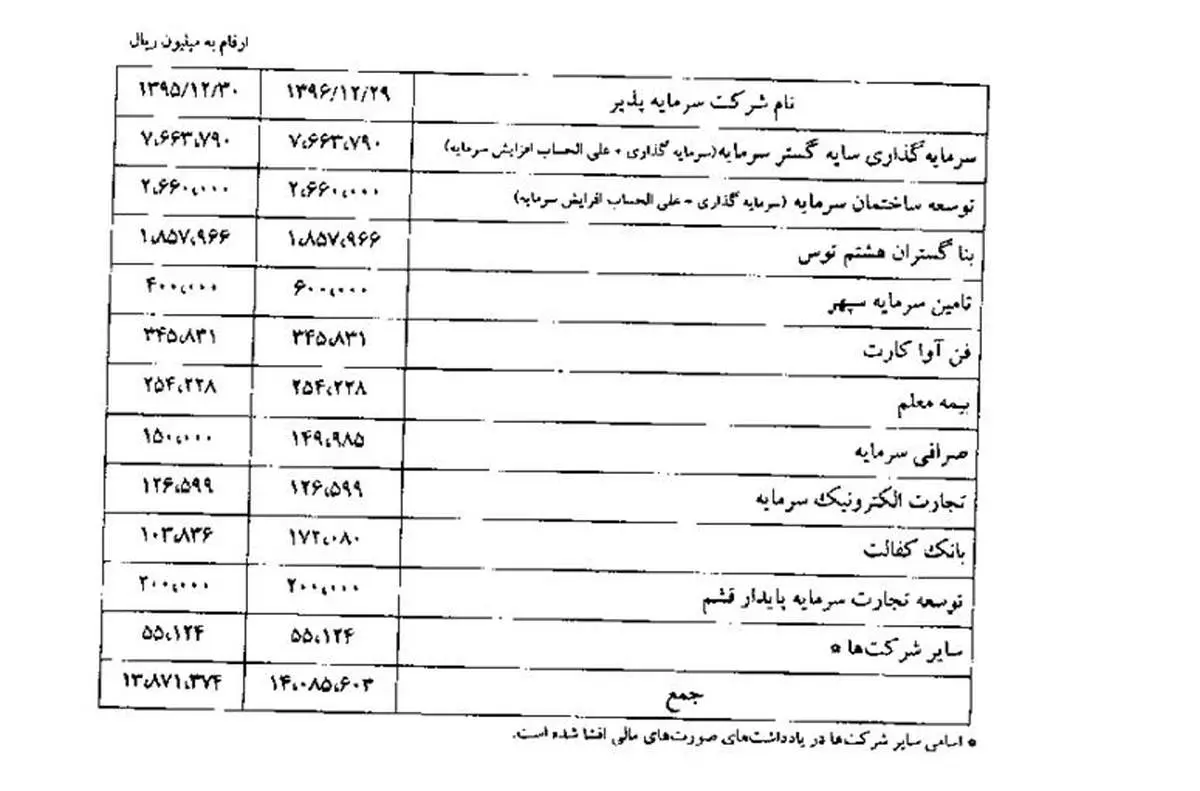 ارقام به میلیون ریال
نام شرکت سرمایه پذیر ۱۳۹۶/۱۲/۲۹ ۱۳۹۵/۱۲/۳۰
سرمایه گذاری سایه گستر سرمایه(سرمایه گذاری + علی الحساب افزایش سرمایه) ۷،۶۶۳،۷۹۰ ۷،۶۶۳،۷۹۰
توسعه ساختمان سرمایه (سرمایه گذاری + علی الحساب افزایش سرمایه) ۲،۶۶۰،۰۰۰ ۲،۶۶۰،۰۰۰
بنا گستران هشتم توس ۱،۸۵۷،۹۶۶ ۱،۸۵۷،۹۶۶
تامین سرمایه سپهر ۶۰۰،۰۰۰ ۴۰۰،۰۰۰
فن آوا کارت ۳۴۵،۸۳۱ ۳۴۵،۸۳۱
بیمه معلم ۲۵۴،۲۲۸ ۲۵۴،۲۲۸
صرافی سرمایه ۱۴۹،۹۸۵ ۱۵۰،۰۰۰
تجارت الکترونیک سرمایه ۱۲۶،۵۹۹ ۱۲۶،۵۹۹
بانک کفالت ۱۷۲،۰۸۰ ۱۰۳،۸۳۶
توسعه تجارت سرمایه پایدار قشم ۲۰۰،۰۰۰ ۲۰۰،۰۰۰
سایر شرکت‌ها * ۵۵،۱۲۴ ۵۵،۱۲۴
جمع ۱۴،۰۸۵،۶۰۳ ۱۳،۸۷۱،۳۷۴
* اسامی سایر شرکت‌ها در یادداشت‌های صورت‌های مالی افشا شده است.